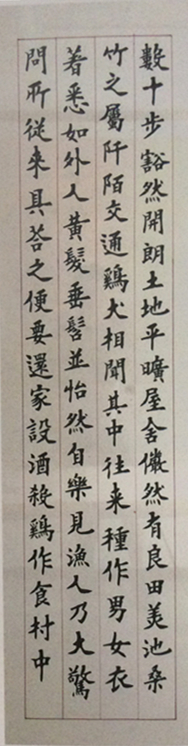 數十步豁然開朗土地平曠屋舍儼然有良田美池桑
竹之屬阡陌交通鷄犬相聞其中往来種作男女衣
着悉如外人黃髮垂髫並怡然自樂見漁人乃大驚
問所從来具荅之便要還家設酒殺鷄作食村中